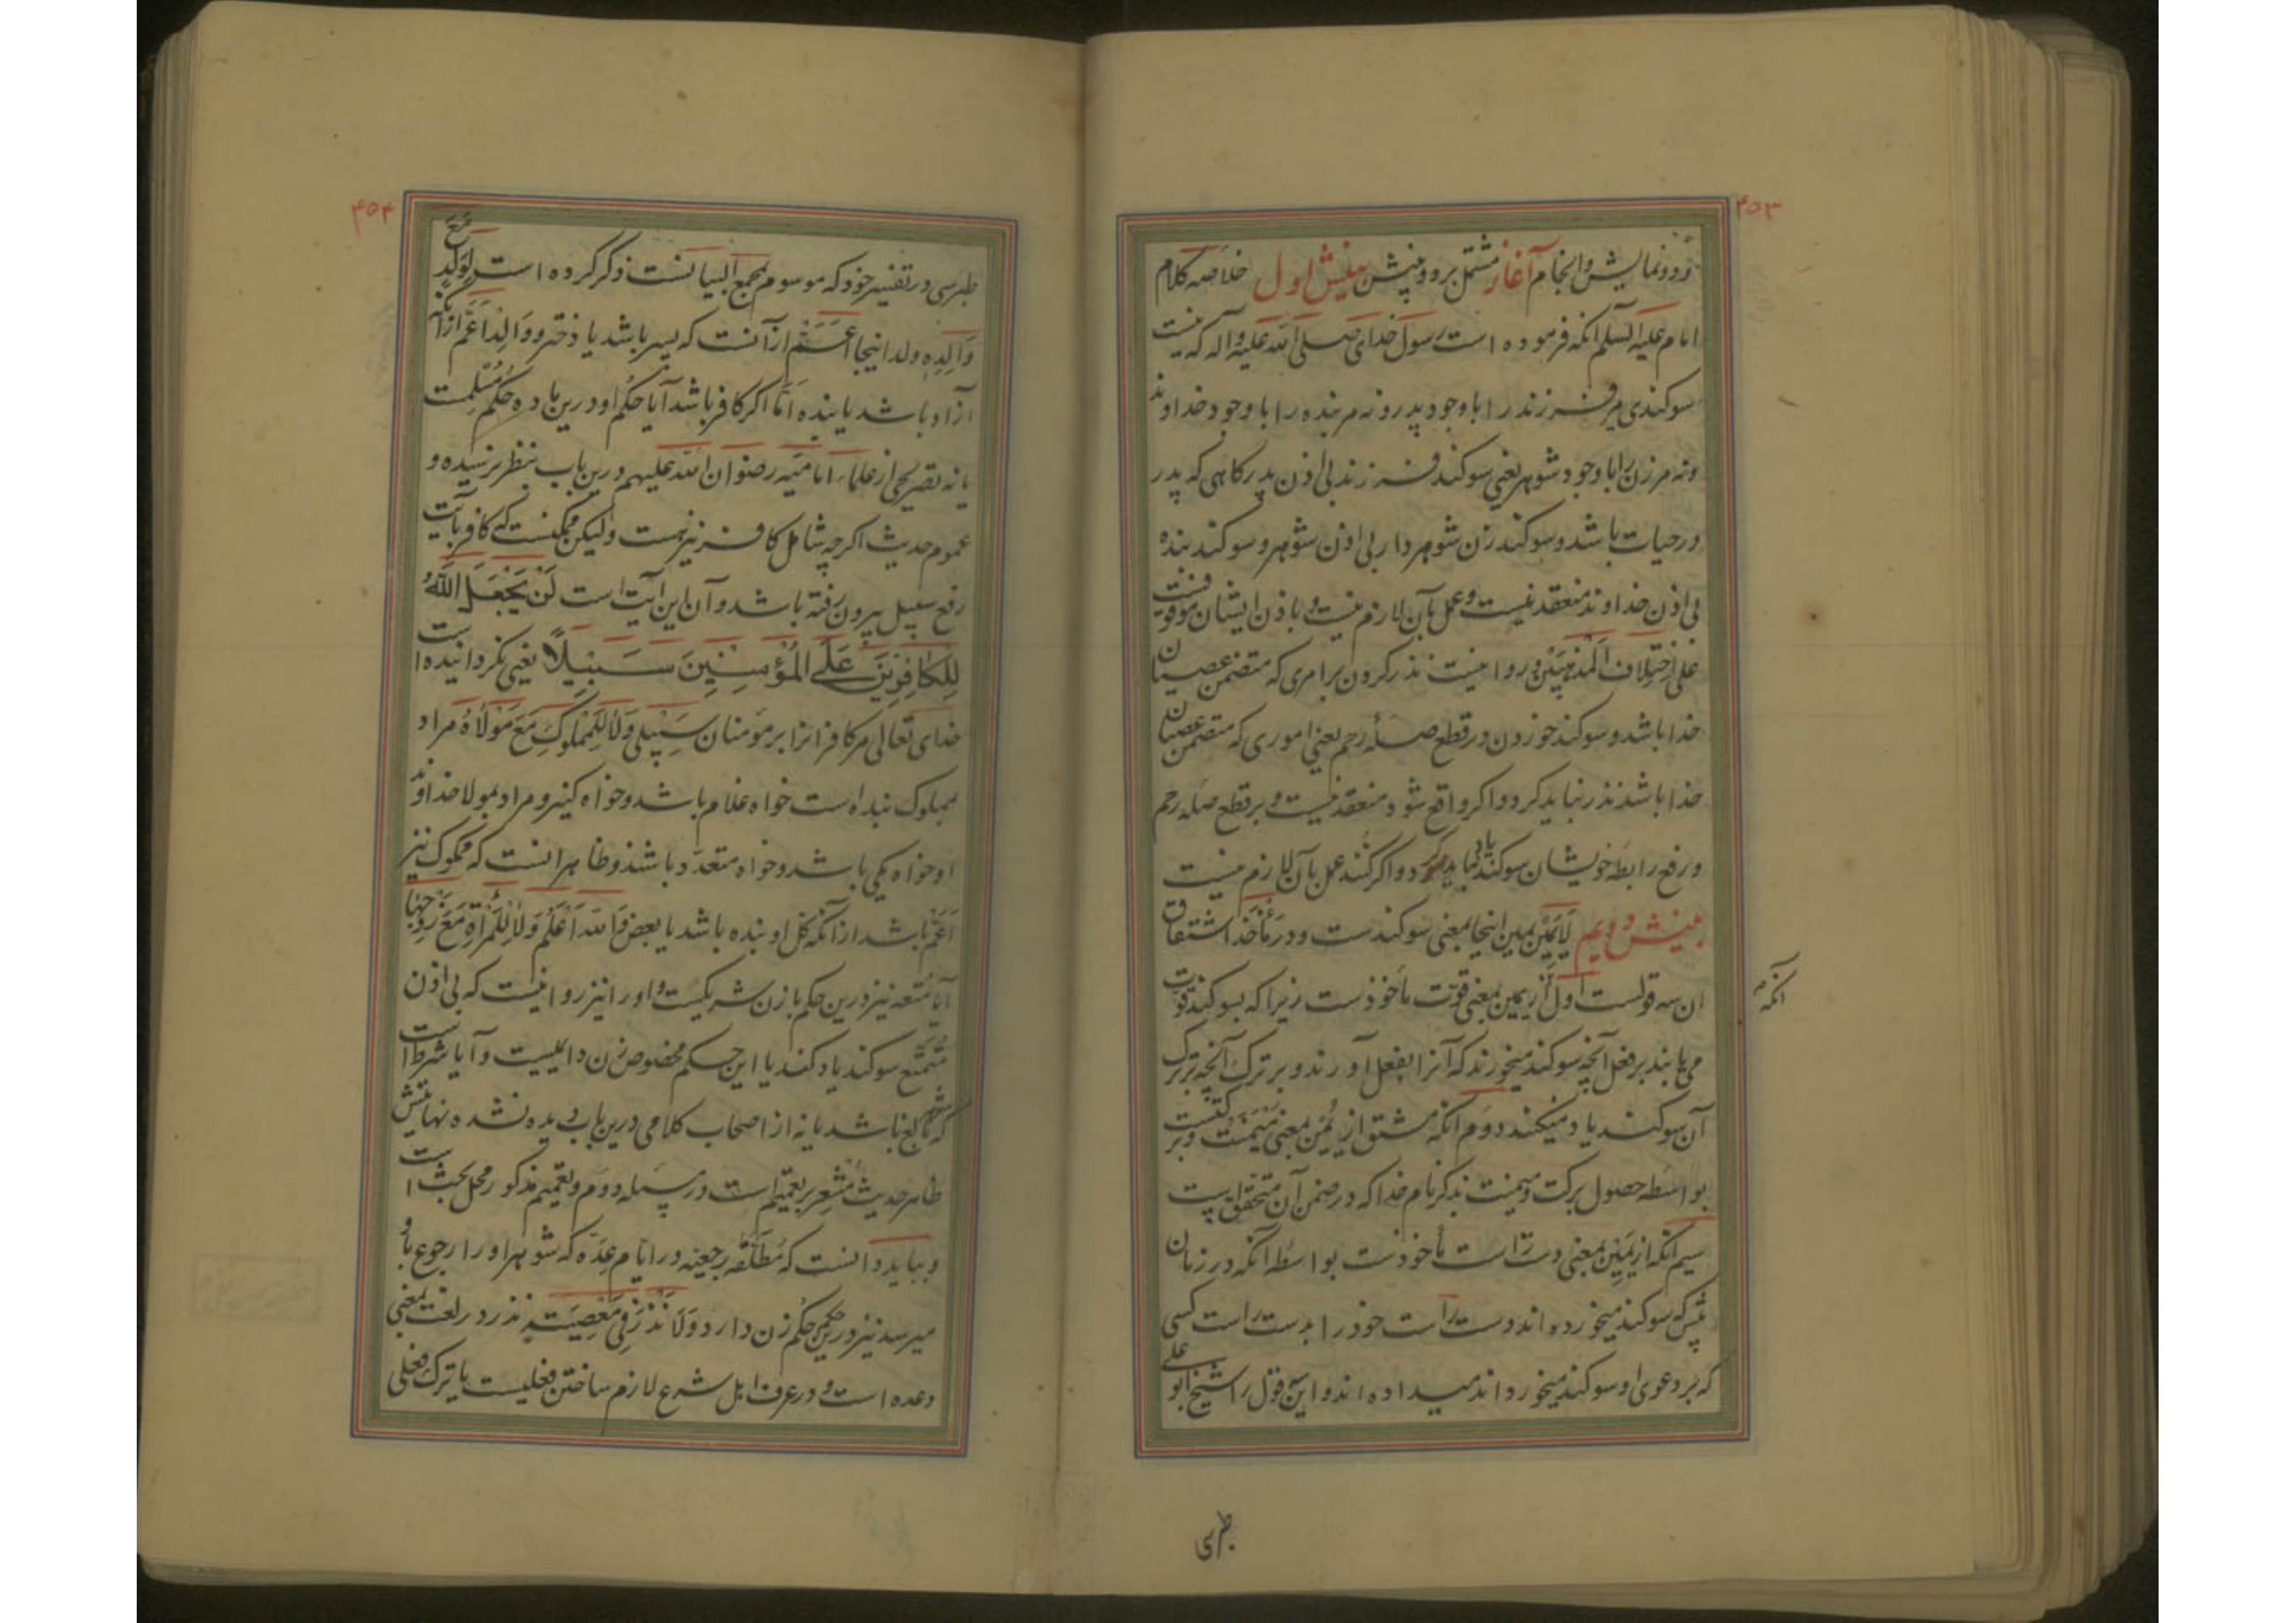 ۴۵۳
ودو نمایش وانجام آغاز مشتمل بر دو بینش بینش اول خلاصه کلام
امام علیه السلم انکه فرموده است رسول خدای صلی الله علیه واله که نیست
سوکندی مر فرزند را با وجود پدر ونه مر بنده را با وجود خداوند
ونه مر زن را با وجود شوهر یعنی سوکند فرزند بی اذن پدر کاهی که پدر
در حیات باشد وسوکند زن شوهردار بی اذن شوهر وسوکند بنده
بی اذن خداوند منعقد نیست وعمل بآن لازم نیست و باذن ایشان موقوفست
علی اختلاف المذهبین وروا نیست نذر کردن بر امری که متضمن عصیان
خدا باشد وسوکند خوردن در قطع صلهٔ رحم یعنی اموری که متضمن عصیان
خدا باشد نذر نباید کرد واکر واقع شود منعقد نیست و بر قطع صله رحم
ورفع رابطه خویشان سوکند یاد نباید کرد واکر کنند عمل بآن لازم نیست
بینش دویم لَایَمِیْنَ یمین اینجا بمعنی سوکندست ودر مأخذ اشتقاق
ان سه قولست اول آنکه از یمین بمعنی قوّت مأخوذست زیرا که بسوکند قوت
می یابند بر فعل آنچه سوکند میخورند که آنرا بفعل آورند و بر ترک آنچه بر ترک
آن سوکند یاد میکنند دوم انکه مشتق از یُمْن بمعنی مَیْمَنَت و برکتست
بواسطه حصول برکت ومیمنت بذکر نام خدا که در ضمن آن متحققست
سیم انکه از یَمِیْن بمعنی دست راست مأخوذست بواسطه آنکه در زمان
پیش که سوکند میخورده اند دست راست خود را بدست راست کسی
که بر دعوی او سوکند میخورده اند میداده اند واین قول را شیخ ابو علی
انکه
طبرسی
۴۵۴
طبرسی در تفسیر خود که موسوم بمجمع البیانست ذکر کرده است لِوَلَدٍ مَعَ
وَالِدِهِ ولد اینجا اَعَمّ از آنست که پسر باشد یا دختر ووَالِد اَعَمّ از آنکه
آزاد باشد یا بنده اَمّا اکر کافر باشد آیا حُکم او درین باده حُکم مُسْلِمست
یا نه تصریحی از علماء امامیّه رضوان الله علیهم درین باب بنظر نرسیده و
عموم حدیث اکرچه شامل کافر نیز هست ولیکن ممکنست که کافر بآیت
رفع سبیل بیرون رفته باشد وآن این آیت است لَنْ یَجْعَلَ اللّٰهُ
لِلْکَافِرِیْنَ عَلَی الْمُؤْمِنِیْنَ سَبِیْلًا یعنی نکردانیده است
خدای تعالی مر کافرانرا بر مؤمنان سَبِیْلی وَلَا لِلْمَمْلُوکِ مَعَ مَوْلَاهُ مراد
بمملوک بنده است خواه غلام باشد وخواه کنیز ومراد بمولا خداوند
او خواه یکی باشد وخواه متعدّد باشند وظاهر انست که مملوک نیز
اَعَمّ باشد از آنکه کل او بنده باشد یا بعض وَالله اَعْلَم وَلَا لِلْمَرْأَةِ مَعَ زَوْجِهَا
آیا مُتعه نیز درین حکم با زن شریکست واورا نیز روا نیست که بی اذن
مُتَمَتِّع سوکند یاد کند یا این حکم مخصوص زن دائمیست وآیا شرط است
که شوهر بالغ باشد یا نه از اصحاب کلامی درین باب دیده نشده نهایتش
ظاهر حدیث مُشْعِر بر تعمیم است در مسئله دوم وتعمیم مذکور محل بحث است
وبباید دانست که مُطَلَّقه رجعیّه در ایّام عِدّه که شوهر اورا رجوع باو
میرسد نیز درین حکم حُکم زن دارد وَلَا نَذْرَ فِی مَعْصِیَتِهِ نذر در لغت بمعنی
وعده است و در عرف اهل شرع لازم ساختن فعلیست یا ترک فعلی